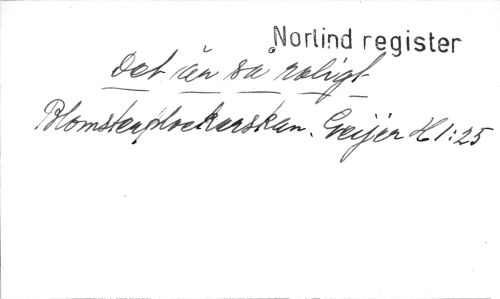 Norlind register
Det är så roligt
Blomsterplockerskan. Geijer H 1:25